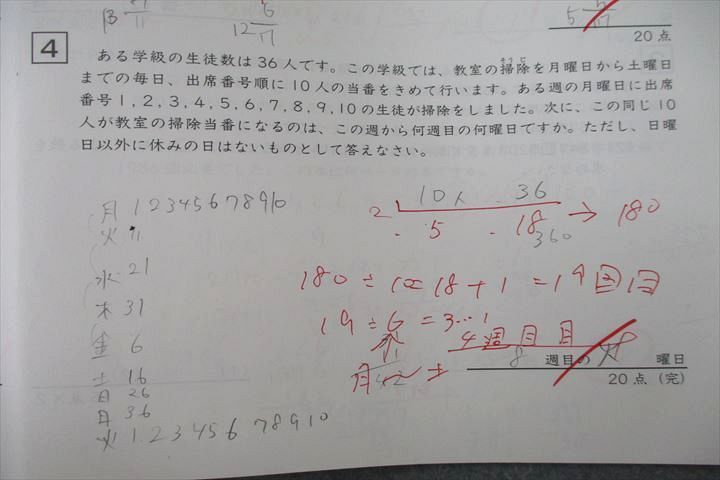 β 11
12 6/17
5 5/17
20点
4
ある学級の生徒数は36人です。この学級では、教室の掃除を月曜日から土曜日
までの毎日、出席番号順に10人の当番をきめて行います。ある週の月曜日に出席
番号1,2,3,4,5,6,7,8,9,10の生徒が掃除をしました。次に、この同じ10
人が教室の掃除当番になるのは、この週から何週目の何曜日ですか。ただし、日曜
日以外に休みの日はないものとして答えなさい。
月 1 2 3 4 5 6 7 8 9 10
火 11
水 21
木 31
金 6
土 16
日 26
月 36
火 1 2 3 4 5 6 7 8 9 10
2 10人 36
5 18 → 180
360
180÷10=18+1=19回目
19÷6=3…1
4週目月
月〜土
8週目の 曜日
20点(完)